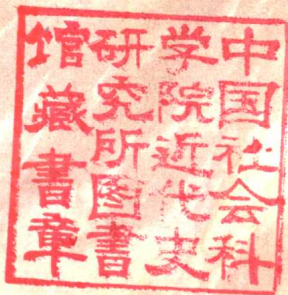 中国社会科
学院近代史
研究所图書
馆藏書章